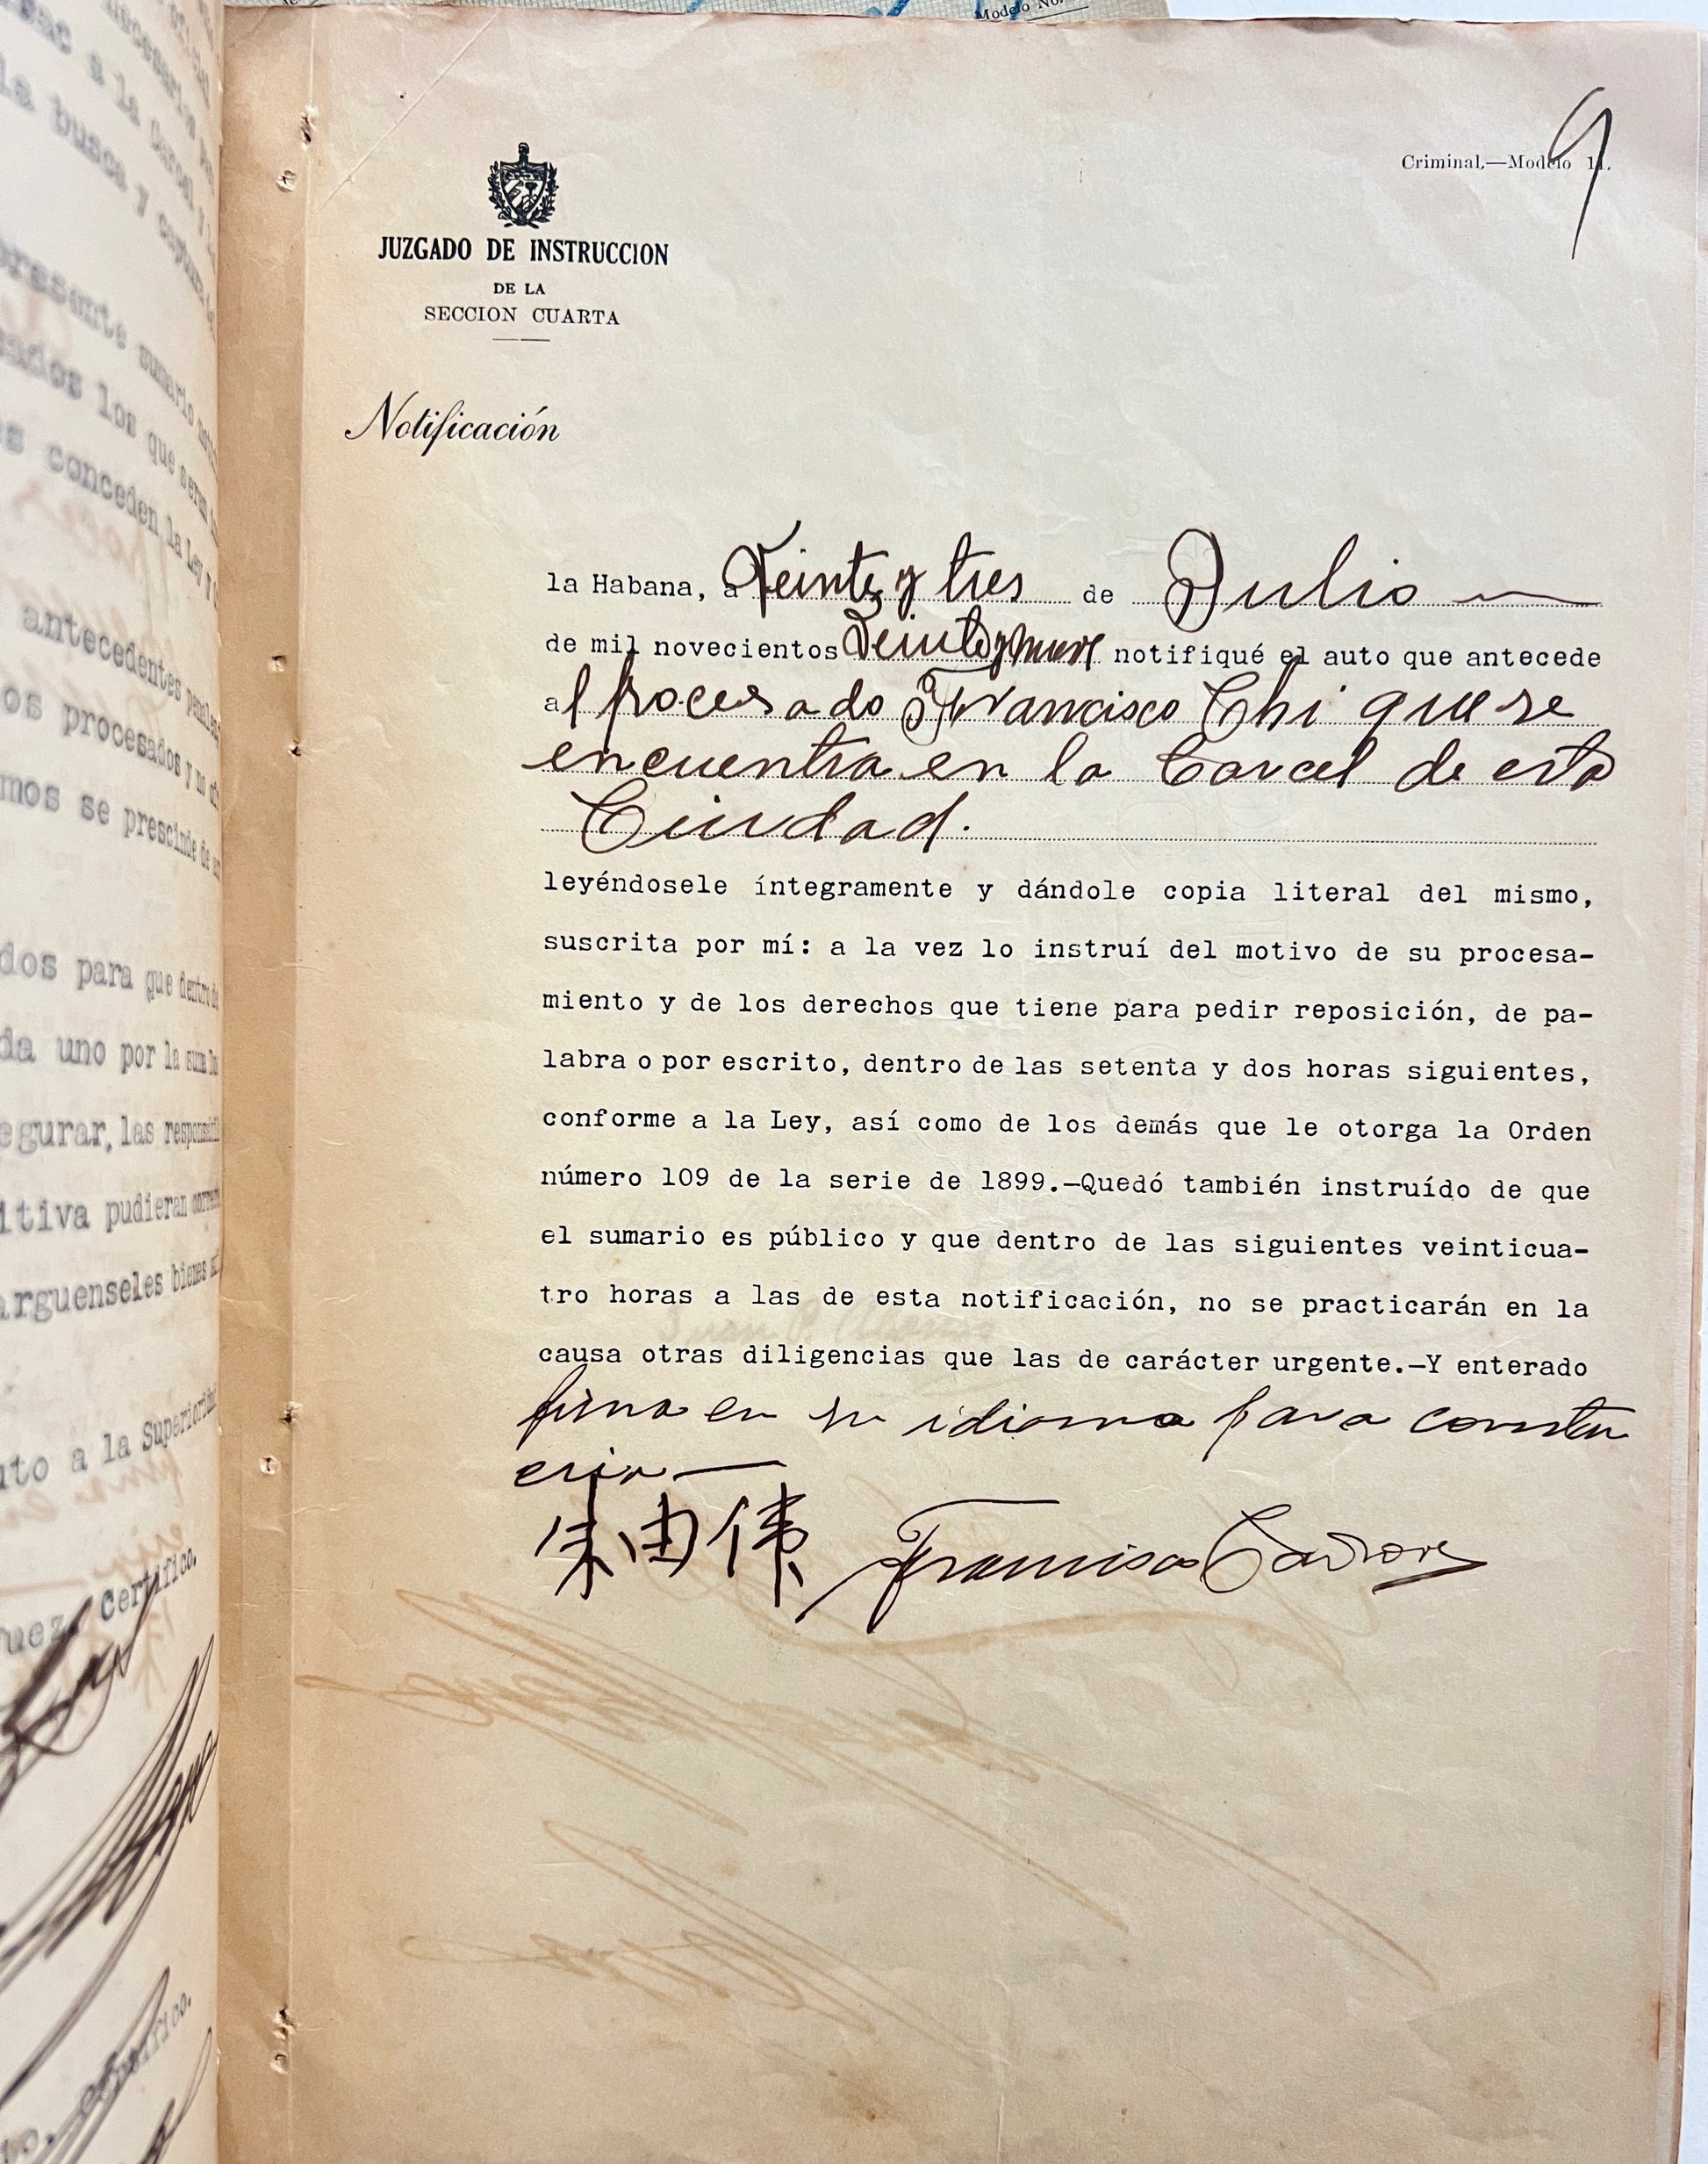 Modelo No.
sac a la Carcel y
la busca y captura
presente sumario
los que seran
es conceden la Ley y
antecedentes penales
os procesados y no
mos se prescinde de
dos para que dentro de
da uno por la suma
egurar, las
itiva pudieran
arguenseles bienes
uto a la Superioridad
Juez, Certifico.
9
Criminal.—Modelo 11.
JUZGADO DE INSTRUCCION
DE LA
SECCION CUARTA
Notificación
la Habana, a Veinte y tres de Julio
de mil novecientos Veinte y nueve notifiqué el auto que antecede
al procesado Francisco Chi que se
encuentra en la Carcel de esta
Ciudad.
leyéndosele íntegramente y dándole copia literal del mismo,
suscrita por mí: a la vez lo instruí del motivo de su procesa-
miento y de los derechos que tiene para pedir reposición, de pa-
labra o por escrito, dentro de las setenta y dos horas siguientes,
conforme a la Ley, así como de los demás que le otorga la Orden
número 109 de la serie de 1899.—Quedó también instruído de que
el sumario es público y que dentro de las siguientes veinticua-
tro horas a las de esta notificación, no se practicarán en la
causa otras diligencias que las de carácter urgente.—Y enterado
firma en su idioma para constan
cia
朱由伟 Francisco